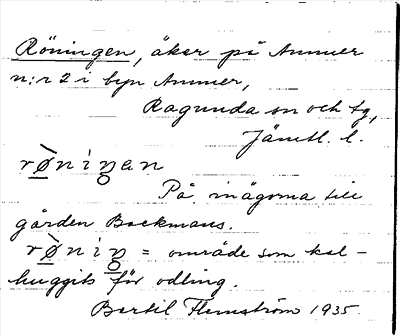 Röningen, åker på Ammer
n:r 2 i byn Ammer,
Ragunda sn och tg,
Jämtl. l.
rø̀niŋ̥an
På inägorna till
gården Backmans.
rø̀niŋ̥ = område som kal-
huggits för odling.
Bertil Flemström 1935.